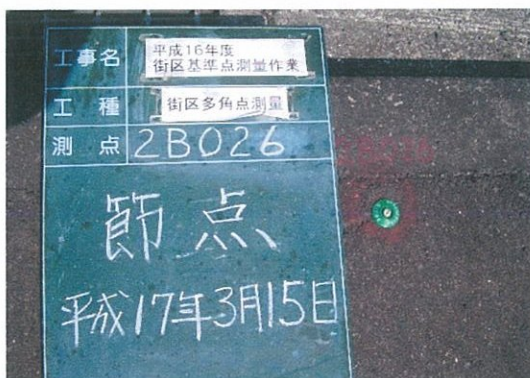 工事名
平成16年度
街区基準点測量作業
工種
街区多角点測量
測点 2B026
節点
平成17年3月15日
2B026